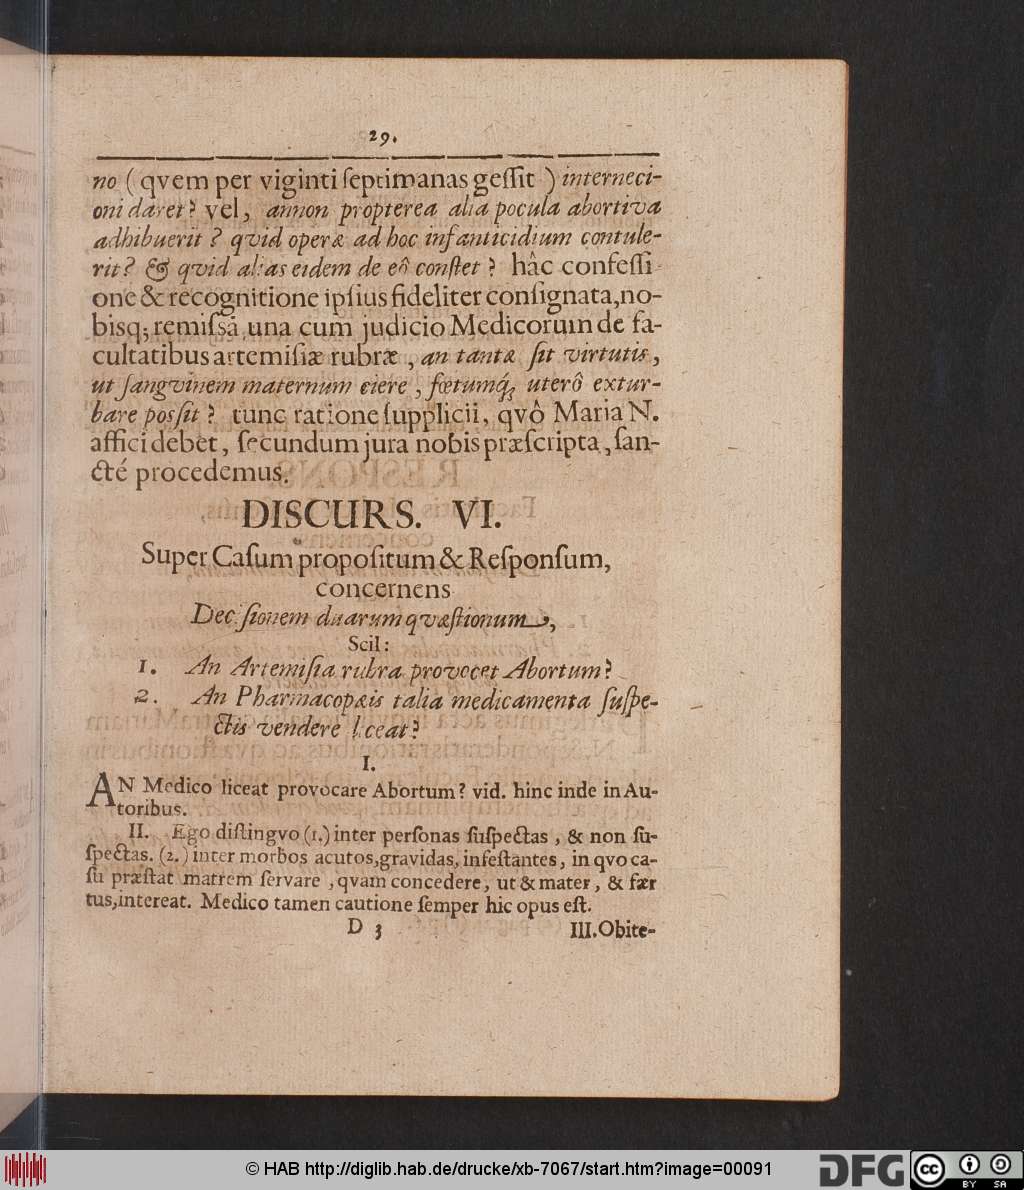 29.
no ( qvem per viginti ſeptimanas geſſit ) interneci-
oni daret? vel, annon propterea alia pocula abortiva
adhibuerit ? qvid operæ ad hoc infanticidium contule-
rit? & qvid alias eidem de eô conſtet ? hâc confeſſi
one & recognitione ipſius fideliter conſignata, no-
bisq; remiſsâ, una cum judicio Medicorum de fa-
cultatibus artemiſiæ rubræ, an tantæ ſit virtutis,
ut ſangvinem maternum ciere, fœtumq́; uterô extur-
bare poſſit ? tunc ratione ſupplicii, qvô Maria N.
affici debet, ſecundum jura nobis præſcripta, ſan-
cté procedemus.
DISCURS. VI.
Super Caſum propoſitum & Reſponſum,
concernens
Deciſionem duarum qvæſtionum,
Scil:
1. An Artemiſia rubra provocet Abortum?
2. An Pharmacopæis talia medicamenta ſuſpe-
ctis vendere liceat?
I.
AN Medico liceat provocare Abortum? vid. hinc inde in Au-
toribus.
II. Ego diſtingvo (1.) inter perſonas ſuſpectas, & non ſu-
ſpectas. (2.) inter morbos acutos, gravidas, infeſtantes, in qvo ca-
ſu præſtat matrem ſervare, qvam concedere, ut & mater, & fær
tus, intereat. Medico tamen cautione ſemper hic opus eſt.
D 3 III. Obite-
© HAB http://diglib.hab.de/drucke/xb-7067/start.htm?image=00091
DFG
cc BY SA